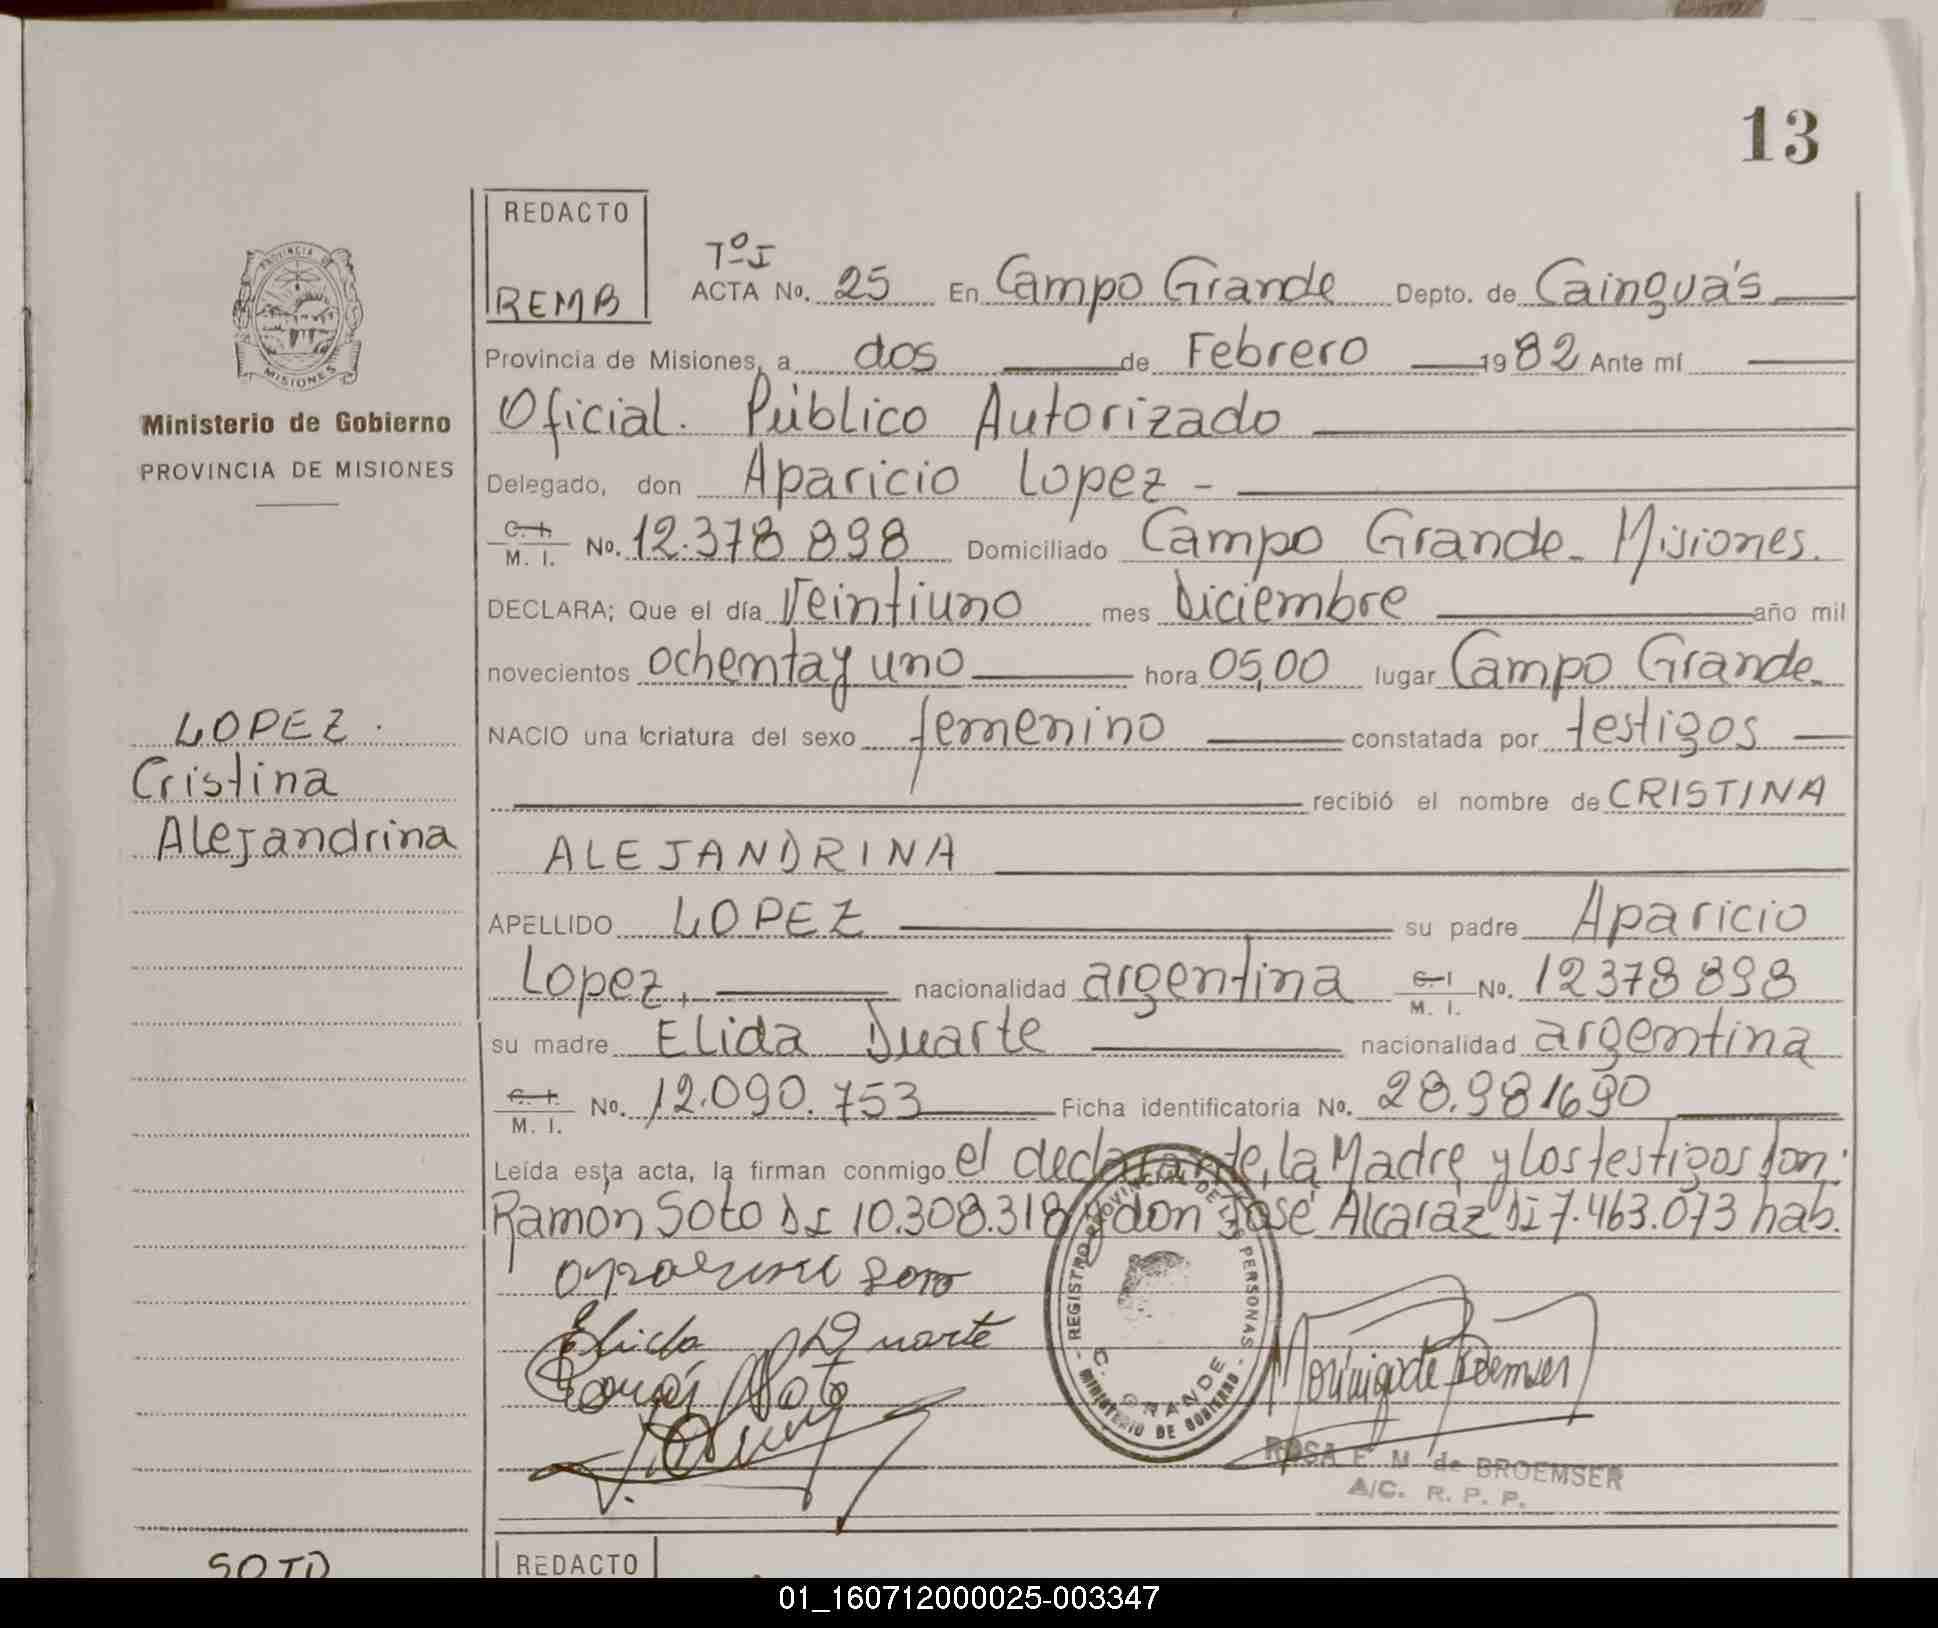 13
REDACTO
REMB
TºI
ACTA No. 25 En Campo Grande Depto. de Cainguás
Provincia de Misiones, a dos de Febrero 1982 Ante mí
Oficial. Público Autorizado
Delegado, don Aparicio Lopez -
C. I. M. I. No. 12.378 898 Domiciliado Campo Grande - Misiones.
DECLARA; Que el día Veintiuno mes Diciembre año mil
novecientos ochenta y uno hora 05,00 lugar Campo Grande.
NACIO una criatura del sexo femenino constatada por testigos
recibió el nombre de CRISTINA
ALEJANDRINA
APELLIDO LOPEZ su padre Aparicio
Lopez, nacionalidad argentina C. I. M. I. No. 12378898
su madre Elida Duarte nacionalidad argentina
C. I. M. I. No. 12.090.753 Ficha identificatoria No. 28.981690
Leída esta acta, la firman conmigo el declarante, la Madre y los testigos don:
Ramón Soto DI 10.308.318 y don José Alcaraz DI 7.463.073 hab.
Elida Duarte
Ramón Soto
REGISTRO PROVINCIAL DE LAS PERSONAS
C. GRANDE
MINISTERIO DE GOBIERNO
Morinigo de Broemser
ROSA E. M. de BROEMSER
A/C. R. P. P.
PROVINCIA DE
MISIONES
Ministerio de Gobierno
PROVINCIA DE MISIONES
LOPEZ.
Cristina
Alejandrina
SOTO
REDACTO
01_160712000025-003347